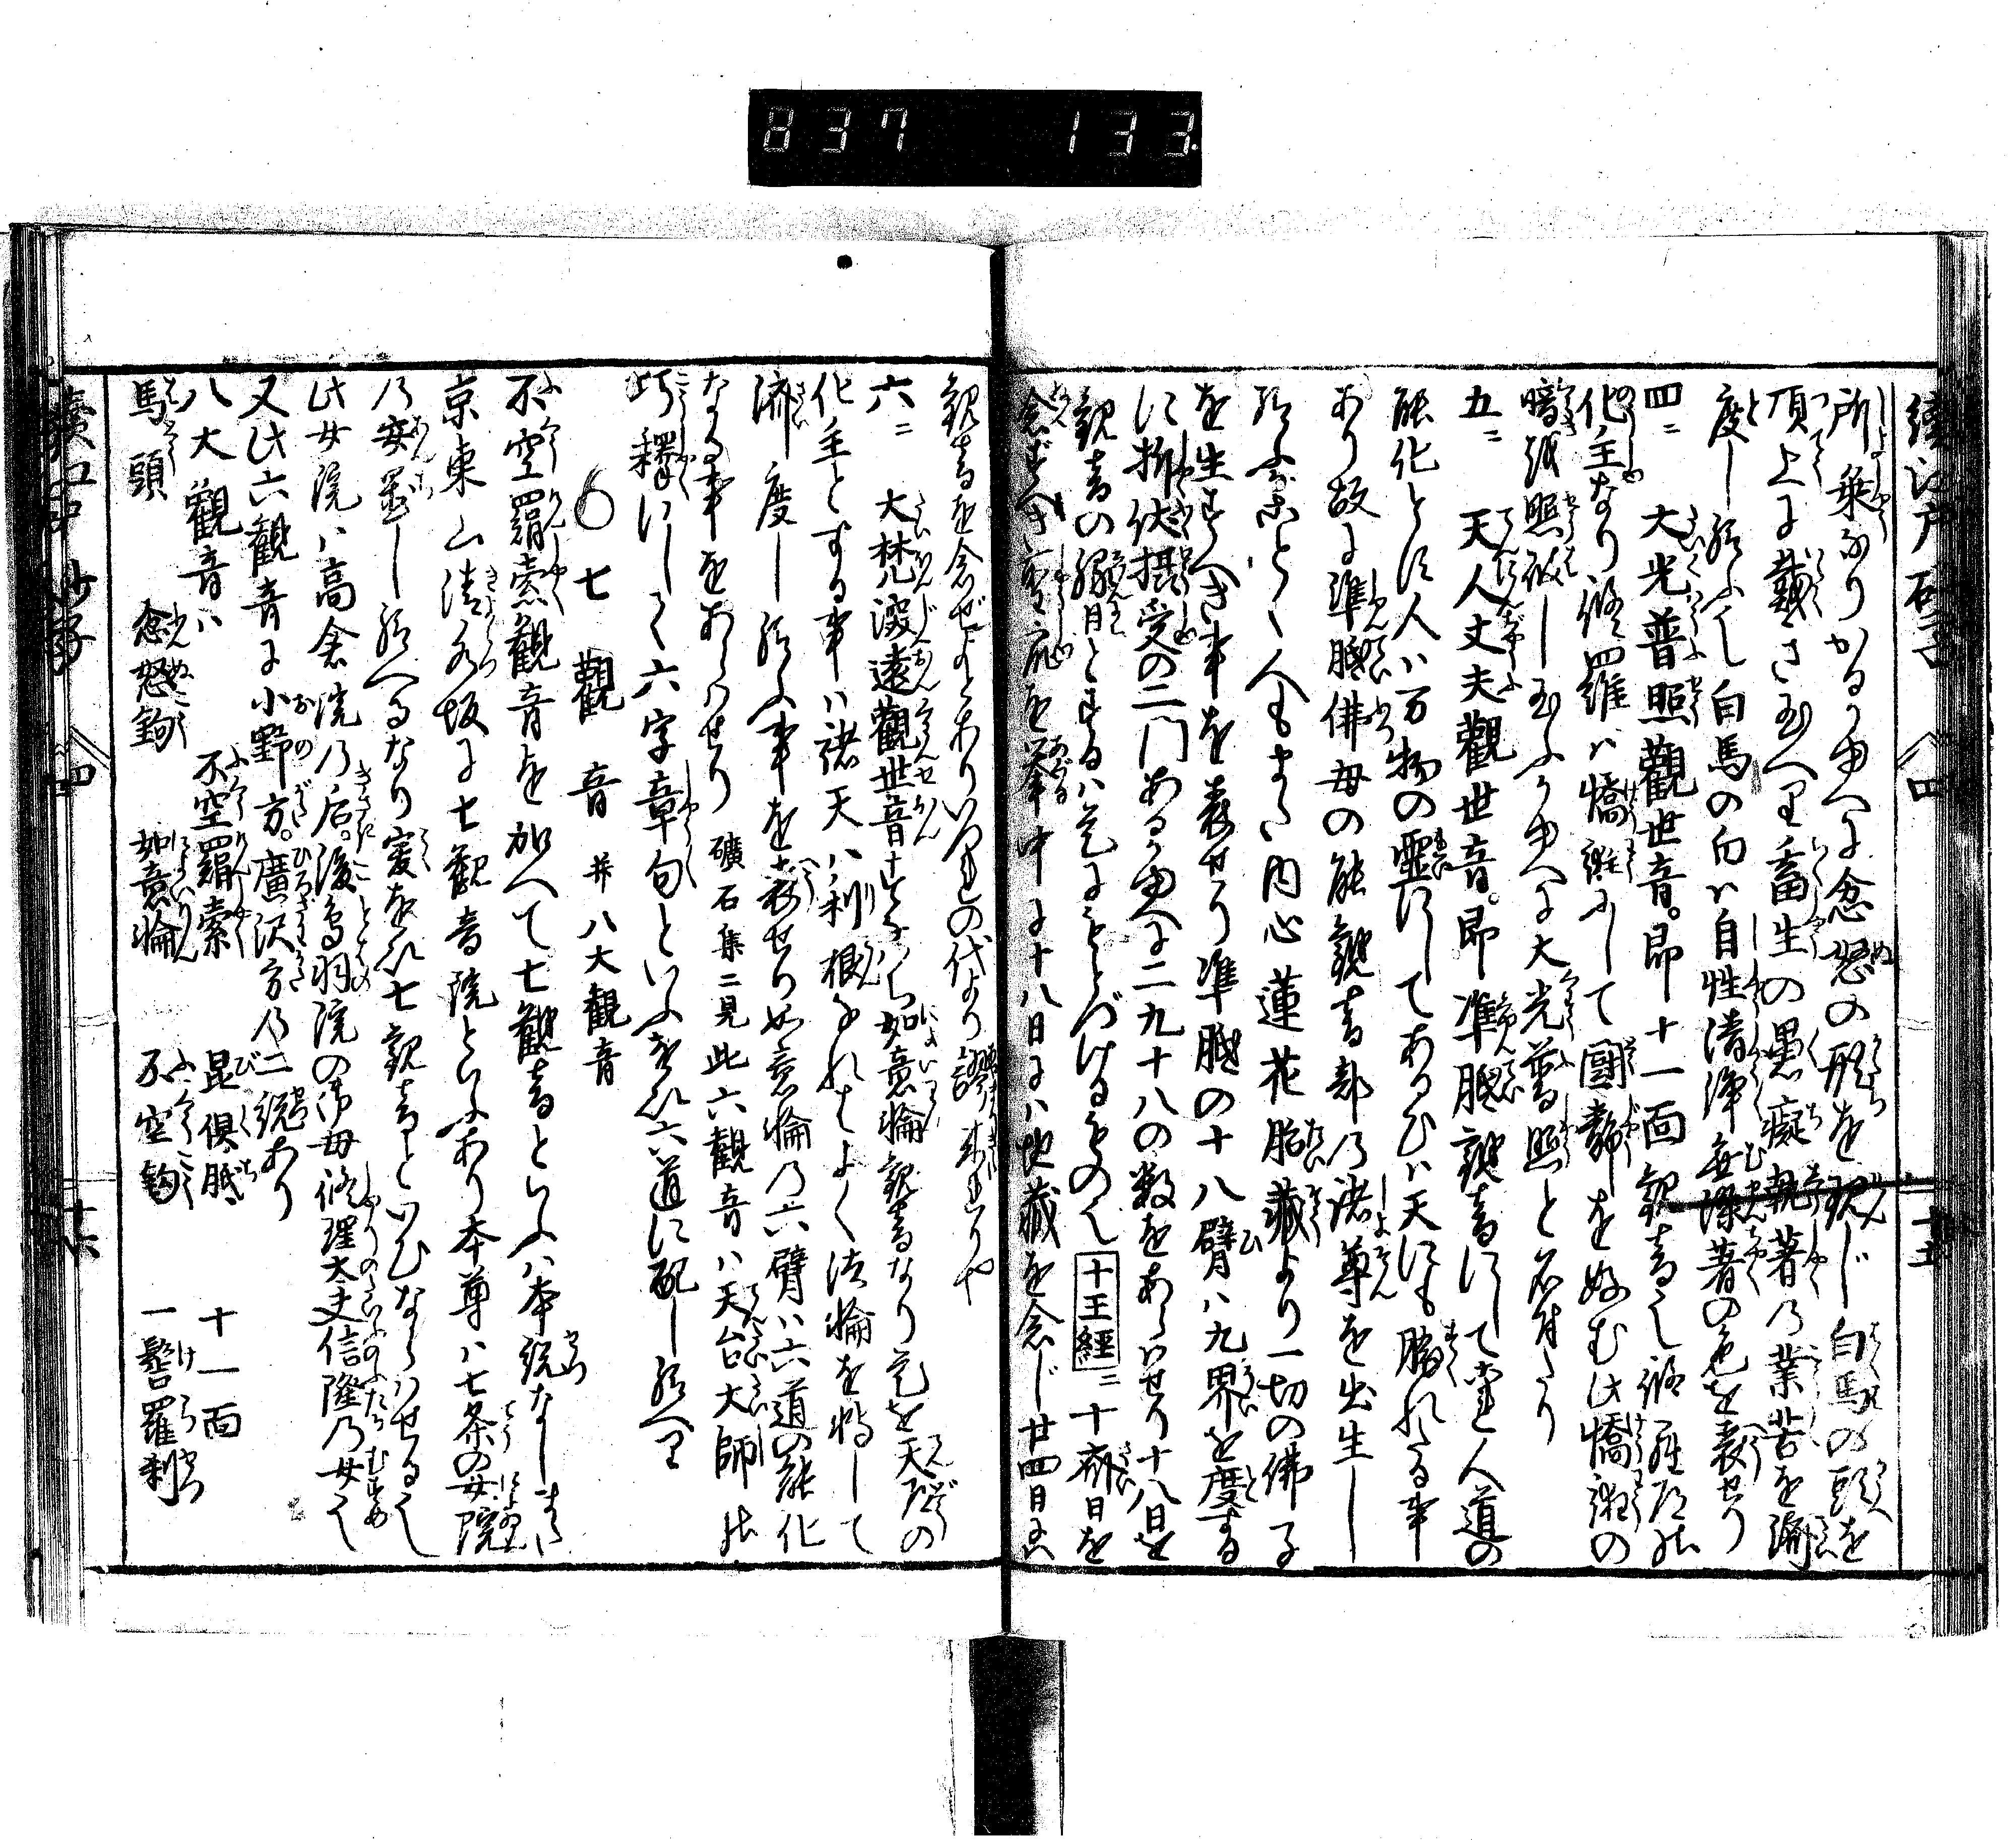 837 133
續江戸砂子 四 十五
所乗なりかるかゆへに忿怒の形を現じ白馬の頭を
頂上に戴き玉へり畜生の愚癡執著乃業苦を濟
度し給ふ也白馬の白ハ自性清浄無染著の色を表せり
四ニ 大光普照觀世音。即十一面観音也修羅道の
化主なり修羅ハ憍慢にして闘諍を好む此憍慢の
暗を照破し玉ふかゆへに大光普照と名付たり
五ニ 天人丈夫觀世音。即準胝観音にして人道の
能化とに人ハ万物の霊にしてあるひハ天にも勝れたる事
あり故に準胝佛母の能観音部乃諸尊を出生し
給ふことく人もまた内心蓮花胎藏より一切の佛子
を生ずへき事を表せり準胝の十八臂ハ九界を度する
に折伏摂受の二門あるかゆへに二九十八の数をあらハせり十八日を
観音の縁日とするハ是にもとづけるもの也 十王經ニ 十齋日を
念ずへき を挙中に十八日にハ地藏を念じ廿四日にハ
観音を念ぜよとあり の代より謬来れりや
六ニ 大梵深遠觀世音すなハち如意輪観音なり是を天道の
化主とする事ハ諸天ハ利根なれはよく法輪を転して
濟度し給ふ事を表せり如意輪乃六臂ハ六道の能化
なる事をあらハせり 礦石集ニ見 此六觀音ハ天台大師の
巧釋にして六字章句といふを以六道に配し給へり
○七觀音 并八大觀音
不空羂索觀音を加へて七觀音といふハ本説なし
京東山清水坂に七觀音院といふあり本尊ハ七条の女院
乃安置し給へるなり爰を以七観音といひならハせる也
此女院ハ高倉院乃后。後鳥羽院の御母修理大夫信隆乃女也
又此六觀音に小野方。廣沢方乃二説あり
八大觀音ハ 不空羂索 毘倶胝 十一面
馬頭 忿怒鉤 如意輪 不空鉤 一髻羅刹
續江戸砂子 四 十六